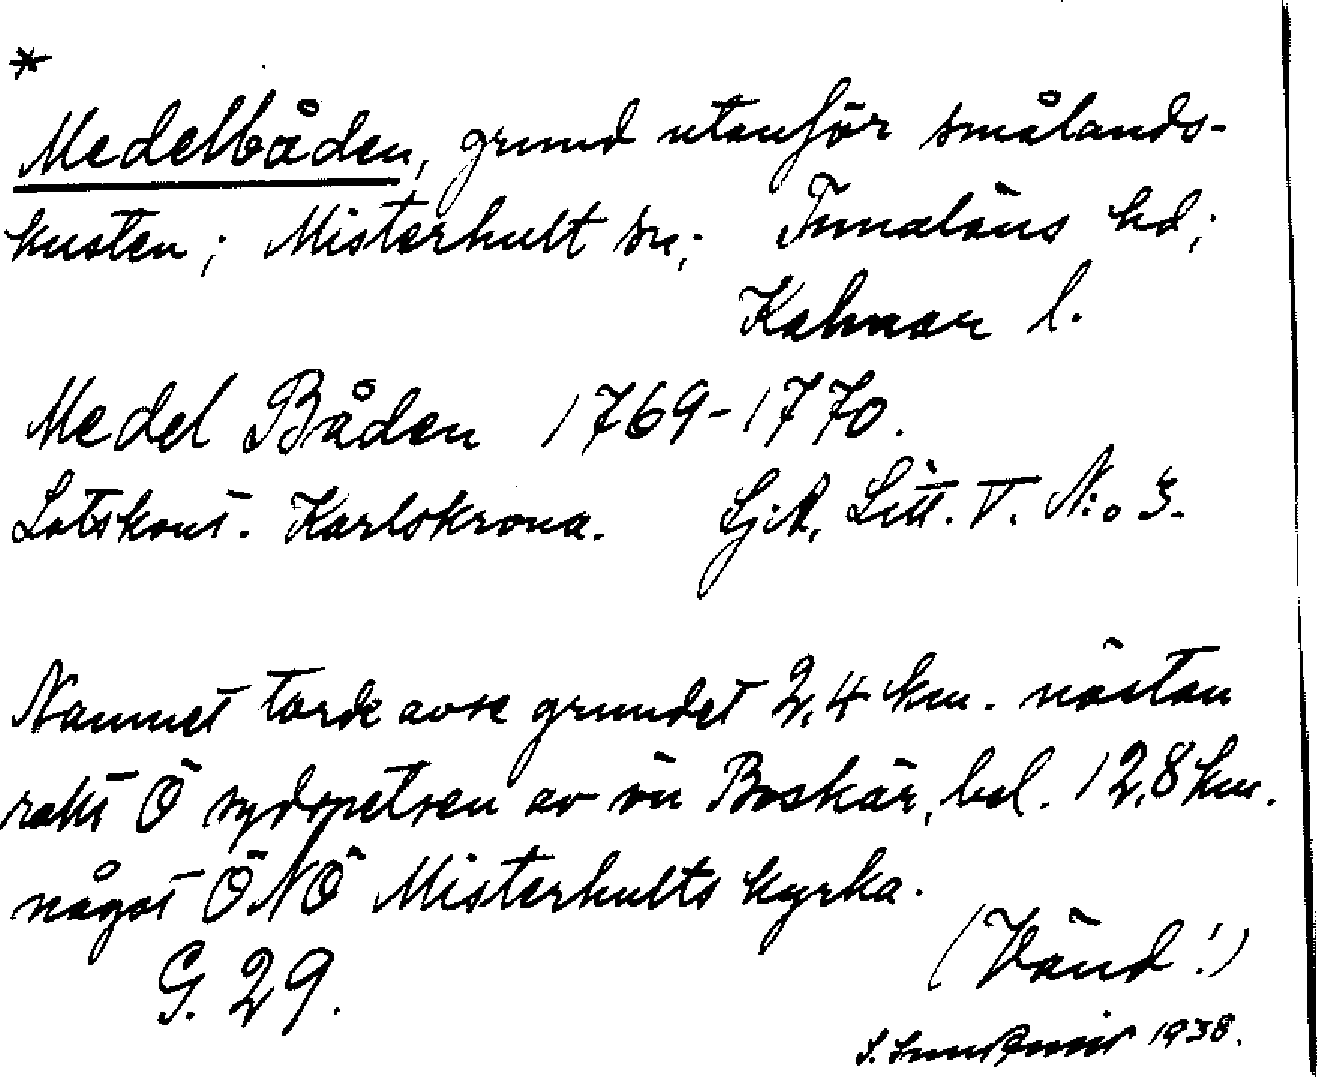 *
Medelbåden, grund utanför smålands-
kusten; Misterhult sn; Tunaläns hd;
Kalmar l.
Medel Båden 1769-1770.
Lotskont. Karlskrona. Sj.A, Litt. V. N:o 3.
Namnet torde avse grundet 2,4 km. nästan
rakt Ö sydspetsen av ön Boskär, bel. 12,8 km.
något ÖNÖ Misterhults kyrka.
G. 29. (Vänd!)
S. 1938.